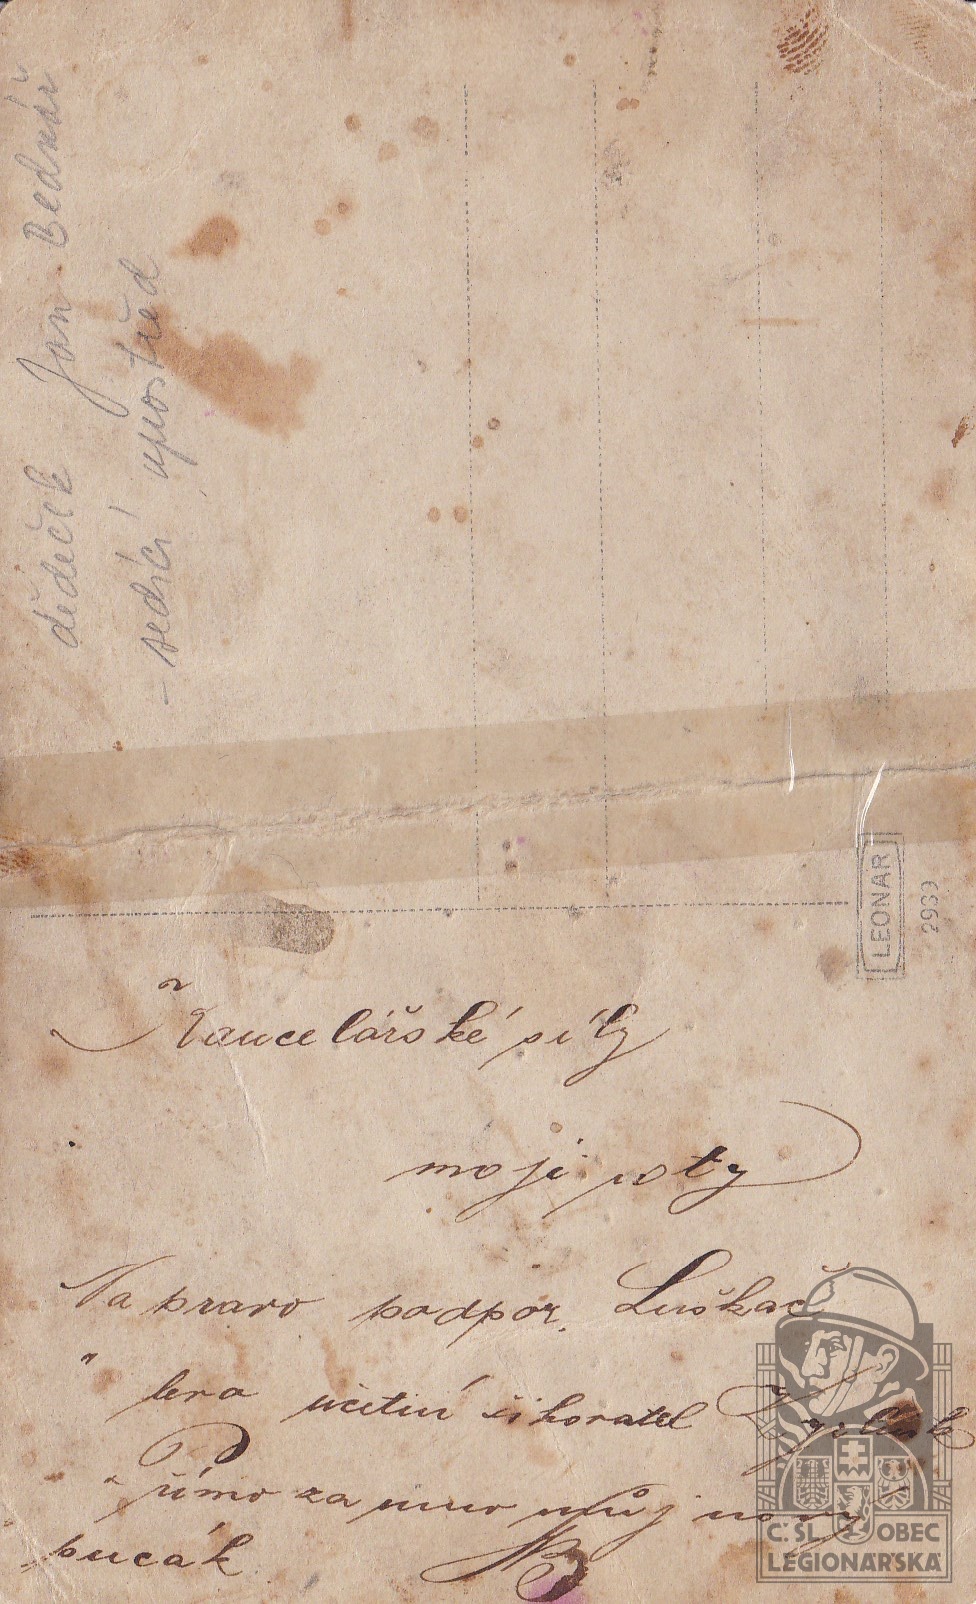 dědeček Jan Bednář
- sedící uprostřed
LEONAR
2939
Kancelářské síly
moji roty
Na pravo podpor. Luškač
" levo účetní šikovatel
Přímo za mno můj nový
pucák. JB
Č.SL. OBEC
LEGIONÁŘSKÁ